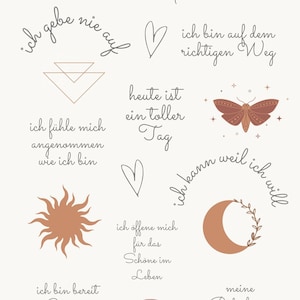 ich gebe nie auf
ich bin auf dem
richtigen Weg
heute ist
ein toller
Tag
ich fühle mich
angenommen
wie ich bin
ich kann weil ich will
ich offene mich
für das
Schöne im
Leben
ich bin bereit
meine